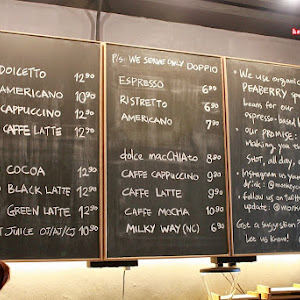 DOLCETTO 12.90
AMERICANO 10.90
CAPPUCCINO 12.90
CAFFE LATTE 12.90
COCOA 12.90
BLACK LATTE 12.90
GREEN LATTE 12.90
JUICE OJ/AJ/CJ
P/s: WE SERVE ONLY DOPPIO
ESPRESSO 6.90
RISTRETTO 6.90
AMERICANO 7.90
dolce macCHIAto 8.90
CAFFE CAPPUCCINO 9.90
CAFFE LATTE 9.90
CAFFE MOCHA 10.90
MILKY WAY (NC) 6.90
• We use organic
PEABERRY
beans for our
espresso-based
• Our PROMISE:
making you
SHOT, all day,
• Instagram us
• Follow us on
update:
Got a suggestion?
Let us know!